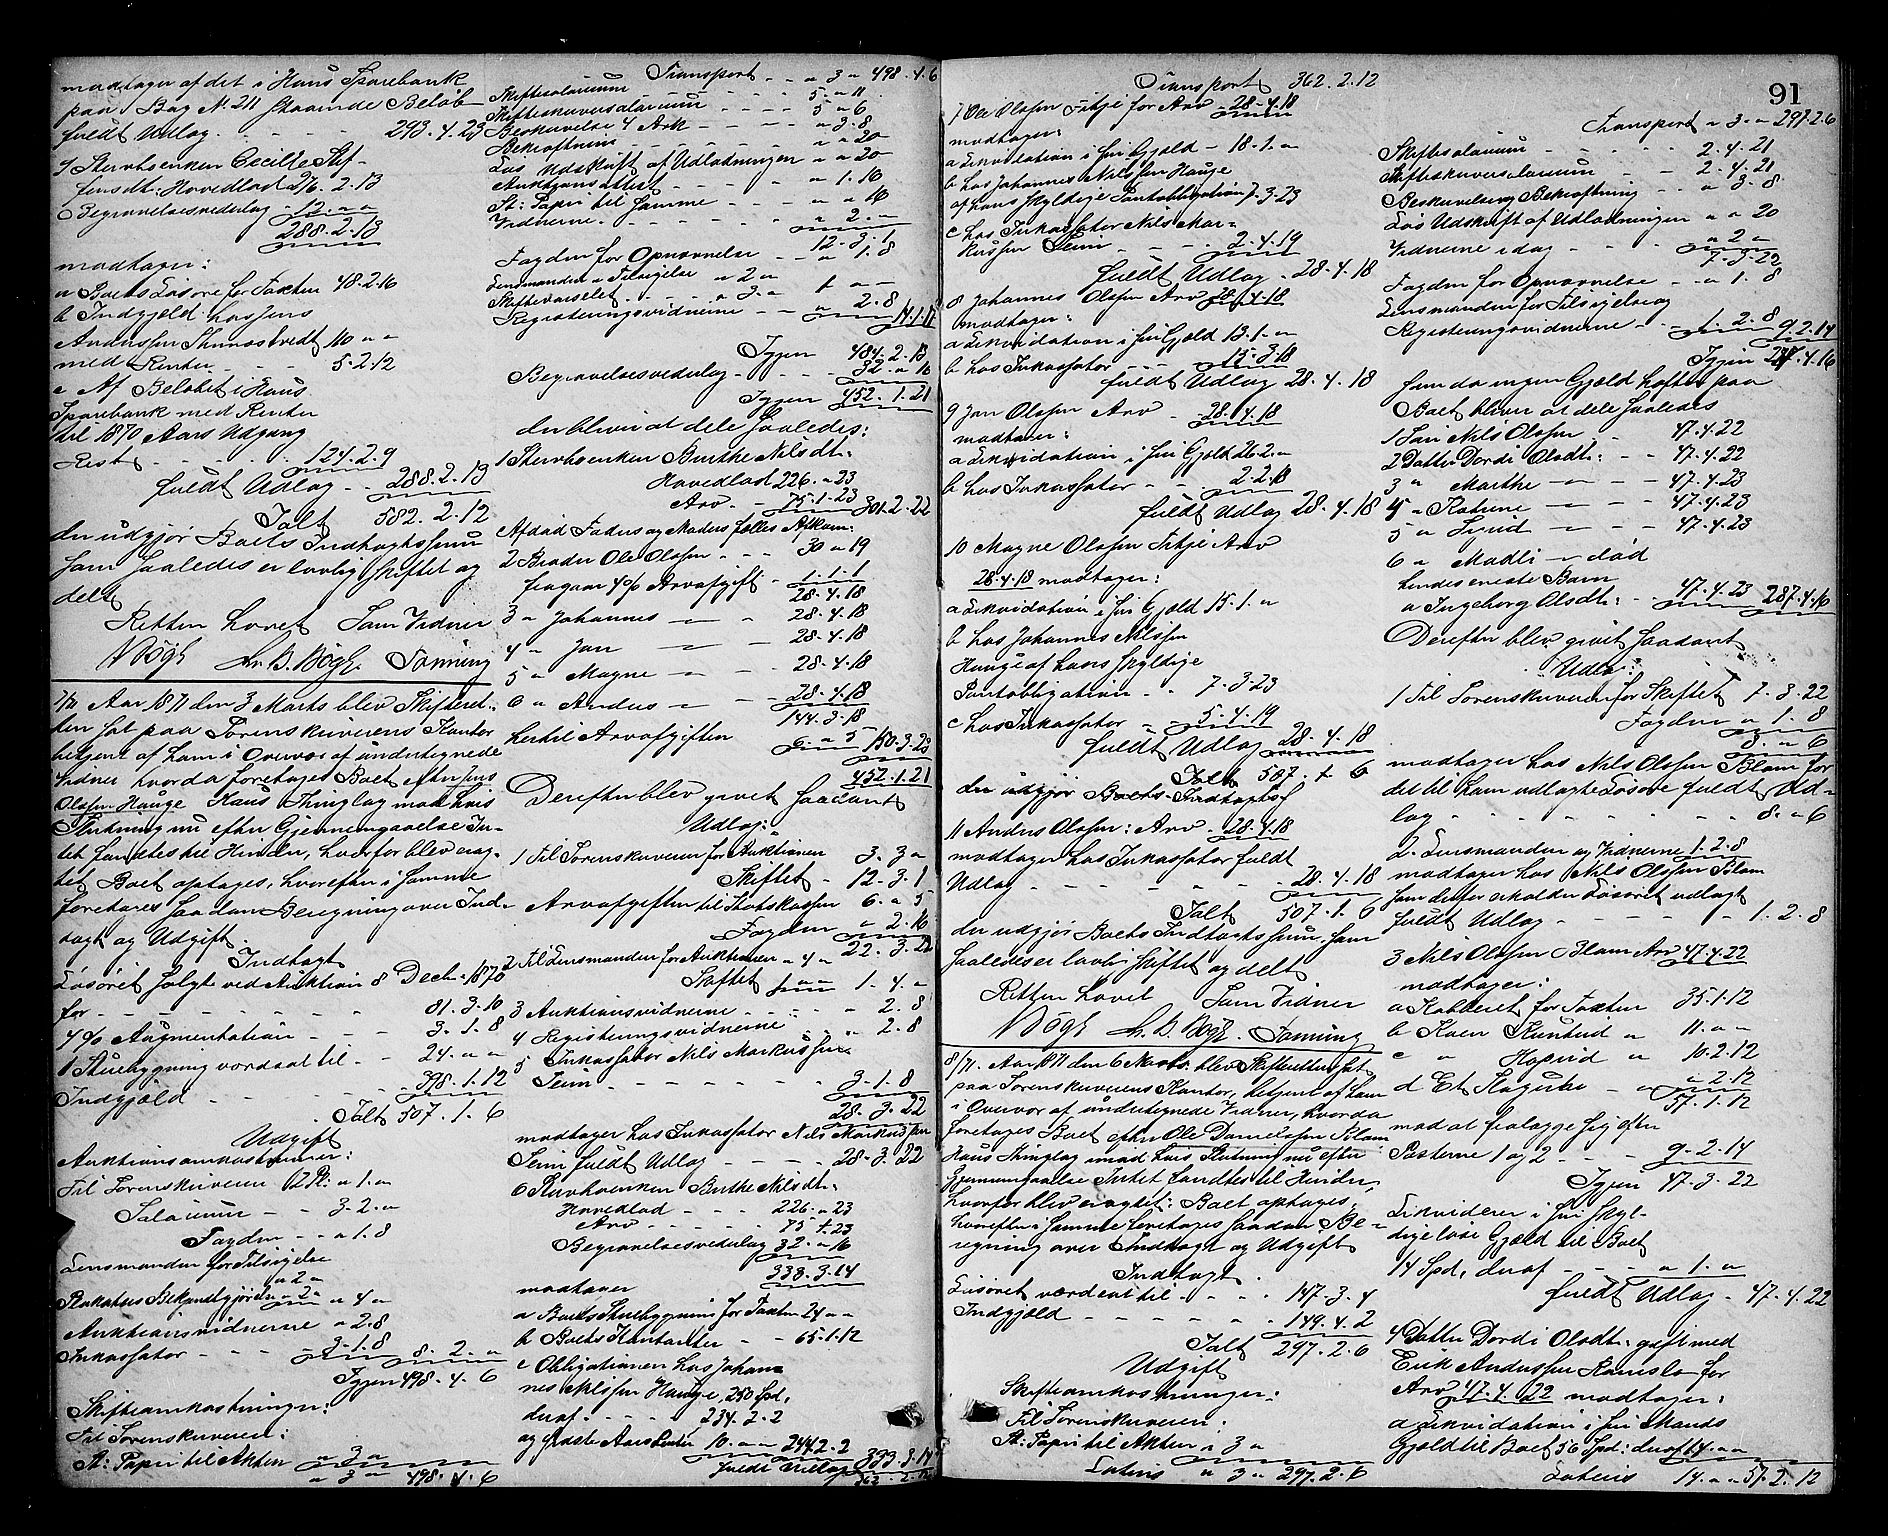 modtager af det i Haus Sparebank
paa Bog N. 211 staaende Beløb
fuldt Udlæg - - - - 293. 4. 23
9 Stervboenken Cecilie Stef-
fensdt: Hovedlod 276. 2. 13
Begravelsesvederlag - 12. " "
288. 2. 13
modtager:
a Boets Løsøre for Taxten 48. 2. 16
b Indgjeld hos Jens
Anderssen 110 " "
med Renter - - - 5. 2. 12
c Af Beløbet i Haus
Sparebank med Renter
til 1870 Aars Udgang
Rest - - - - 124. 2. 9
fuldt Udlæg - - 288. 2. 13
Ialt 582. 2. 12
der udgjør Boets Indtægtssum
som saaledes er lovlig skiftet og
delt
Retten hævet Som Vidner
7/71 Aar 1871 den 3 Marts blev Skifteret-
ten sat paa Sorenskriverens Kontor
betjent af ham i Overvær af undertegnede
Vidner hvorda foretages Boet efter Jens
Olsen Hauge Haus Thinglag mod hvis
Slutning nu efter Gjennemgaaelse In-
tet fandtes til Hinder, hvorfor blev erag-
tet Boet optages, hvorefter i samme
foretages saadan Beregning over Ind-
tægt og Udgift.
Indtægt
Løsøret solgt ved Auktion 8 Decbr 1870
for - - - - - - 81. 3. 10
4 % Augmentation - - 3. 1. 8
1 Stuebygning værdsat til - - 24. " "
Indgjæld - - - - 398. 1. 12
Ialt 507. 1. 6
Udgift
Auktionsomkostninger:
Til Sorenskriveren " 1. "
Salarium - - 3. 2. "
Fogden - - " 1. 8
Lensmanden for Tilsigelse
" 2 "
Plakaters Bekjendtgjørelse " 2 " " 4 "
Auktionsvidnerne " 2. 8
Inkassator - - - 3. 1. 8 8. 2. "
Igjen 498. 4. 6
Skifteomkostninger:
Til Sorenskriveren:
St: Papir til Akten " 3 "
" 3 " 498. 4. 6
Transport - - " 3 " 498. 4. 6
Skiftesalarium 5 " 11
Skifteskriversalarium - - - - 5 " 6
Beskrivelse 4 Ark - - - - " 3. 8
Bekræftning - - - " " 20
Løs Udskrift af Udlodningen " " 20
Auktionsattest - - - - " 1. 16
St: Papir til samme - - - " " 16
Vidnerne - - - - - " 2. -
12. 3. 1
Fogden for Opnævnelse - - " 1. 8
Lensmanden Tilsigelse " 2 "
Skiftevarselet - - - " 3. " 1 " "
Registeringsvidnerne - - " 2. 8
14. 1. 17
Igjen 484. 2. 13
Begravelsesvederlag - - - - 32. " 16
Igjen 452. 1. 21
der bliver at dele saaledes:
1 Stervboenken Birthe Nilsdt:
Hovedlod 226. " 23
Arv - 75. 1. 23 301. 2. 22
Afdød Faders og Moders fælles Afkom:
2 Broder Ole Olsen - - - 30 " 19
fragaar 4 % Arveafgift - 1. 1. 1
28. 4. 18
3 " Johannes - " 28. 4. 18
4 " Jan - 28. 4. 18
5 " Magne - " 28. 4. 18
6 " Anders - 28. 4. 18
144. 3. 18
hertil Arveafgiften 6. " 5 150. 3. 23
452. 1. 21
Derefter blev gjort saadant
Udlæg:
1 Til Sorenskriveren for Auktionen 3. 3 "
Skiftet - 12. 3. 1
Arveafgiften til Statskassen 6. " 5
Fogden " 2. 16
22. 3. 22
2 Til Lensmanden for Auktionen " 4 "
Skiftet 1 " " 1. 4. "
3 Auktionsvidnerne - - - - - " 2. 8
4 Registeringsvidnerne - - " 2. 8
5 Inkassator Nils Markussen
Seim - - - - - - 3. 1. 8
28. 3. 22
modtager hos Inkassator Nils Markussen
Seim fuldt Udlæg - - - - 28. 3. 22
6 Stervboenken Birthe Nilsdt:
Hovedlod - - - 226. " 23
Arv - - - - - 75. 1. 23
Begravelsesvederlag 32. " 16
333. 3. 14
modtager
a Boets Stuebygning for Taxten 24 " "
b Boets Kontanter - - 65. 1. 12
c Obligationen hos Johan-
nes Nilssen Hauge, 250 Spd,
deraf - - - - 234. 2. 2
og Aars Renter 10. " " 244. 2. 2
fuldt Udlæg 333. 3. 14
362. 2. 12
91
Transport 362. 2. 12
7 Ole Olsen Titje for Arv - 28. 4. 18
modtager:
a Likvidation i sin Gjæld - 18. 1. "
b hos Johannes Nilssen Hauge
af hans skyldige Pantobligation 7. 3. 23
c hos Inkassator Nils Mar-
kussen Seim - - - - 2. 4. 19
fuldt Udlæg - 28. 4. 18
8 Johannes Olsen Arv 28. 4. 18
modtager:
a Likvidation i sin Gjæld 13. 1. "
b hos Inkassator - - - 15. 3. 18
fuldt Udlæg 28. 4. 18
9 Jan Olsen Arv - - 28. 4. 18
modtager:
a Likvidation i sin Gjæld 26. 2. "
b hos Inkassator - - 2. 2. 18
fuldt Udlæg 28. 4. 18
10 Magne Olsen Titje Arv
28. 4. 18 modtager:
a Likvidation i sin Gjæld 15. 1. "
b hos Johannes Nilssen
Hauge af hans skyldige
Pantobligation - - 7. 3. 23
c hos Inkassator - - 5. 4. 19
fuldt Udlæg 28. 4. 18
Ialt 507. 1. 6
der udgjør Boets Indtægtsf
11 Anders Olsen: Arv - 28. 4. 18
modtager hos Inkassator fuldt
Udlæg - - - - - - 28. 4. 18
Ialt 507. 1. 6
der udgjør Boets Indtægtssum, som
saaledes er lovlig skiftet og delt
Retten hævet Som Vidner
8/71. Aar 1871 den 6 Marts blev Skifteretten sat
paa Sorenskriverens Kontor, betjent af ham
i Overvær af undertegnede Vidner, hvorda
foretages Boet efter Ole Danielsen Blom
Haus Thinglag imod hvis Slutning nu efter
Gjennemgaaelse Intet fandtes til Hinder,
hvorfor blev eragtet: Boet optages,
hvorefter i samme foretages saadan Be-
regning over Indtægt og Udgift
Indtægt.
Løsøret værdsat til - - - - 147. 3. 4
Indgjæld - - - - - - 149. 4. 2
Ialt 297. 2. 6
Udgift
Skifteomkostninger:
Til Sorenskriveren:
St: Papir til Akten : 3 "
Lateris " 3 " 297. 2. 6
Transport " 3 " 297. 2. 6
Skiftesalarium - - - - - 2. 4. 21
Skifteskriversalarium - - 2. 4. 21
Beskrivelse og Bekræftning - " 3. 8
Løs Udskrift af Udlodningen " " 20
Vidnerne idag - - - - " 2 "
7. 3. 22
Fogden for Opnævnelse - - " 1. 8
Lensmanden for Tilsigelse og
Registeringsvidnerne - - 1. 2. 8 9. 2. 14
Igjen 287. 4. 16
som da ingen Gjæld hefter paa
Boet bliver at dele saaledes
1 Søn Nils Olsen - - 47. 4. 22
2 Datter Dordi Olsdt: - - 47. 4. 22
3 " Marthe - " - - 47. 4. 23
4 " Katrine - " - 47. 4. 23
5 " - " - 47. 4. 23
6 " Madli - død
hendes eneste Barn
a Ingeborg Olsdt: - - 47. 4. 23 287. 4. 16
Derefter blev gjort saadant
Udlæg:
1 Til Sorenskriveren for Skiftet 7. 3. 22
Fogden " 1. 8
8. " 6
modtager hos Nils Olsen Blom for
det til ham udlagte Løsøre fuldt Ud-
læg - - - - - - - 8. " 6
2. Lensmanden og Vidnerne 1. 2. 8
modtager hos Nils Olsen Blom
som derfor erholder Løsøret udlagt
fuldt Udlæg - - - - - - 1. 2. 8
3 Nils Olsen Blom Arv 47. 4. 22
modtager:
a for Taxten 35. 1. 12
b Koen " 11. " "
c " " 10. 2. 12
d Et " " 2. 12
57. 1. 12
mod at fralægge sig efter
Posterne 1 og 2 - - - 9. 2. 14
Igjen 47. 3. 22
Likviderer i sin skyl-
dige løse Gjæld til Boet
14 Spd, deraf - - - " 1. "
fuldt Udlæg - 47. 4. 22
4 Datter Dordi Olsdt: gift med
Erik Anderssen for
Arv 47. 4. 22 modtager:
a Likvidation i sin Mands
Gjæld til Boet 56 Spd: deraf 14. " "
Lateris 14. " " 57. 2. 12